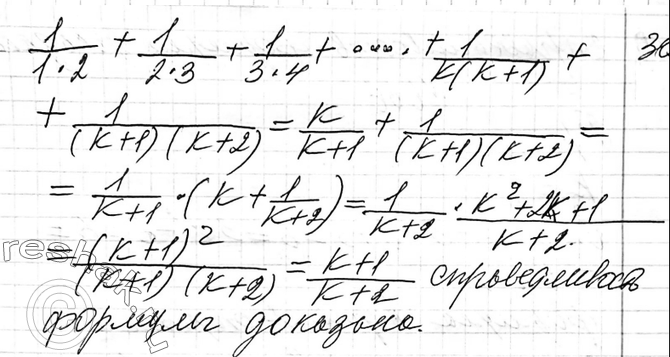 1/(1·2) + 1/(2·3) + 1/(3·4) + .... + 1/(k(k+1)) +
+ 1/((k+1)(k+2)) = k/(k+1) + 1/((k+1)(k+2)) =
= 1/(k+1) · (k + 1/(k+2)) = 1/(k+2) · (k²+2k+1)/(k+2)
= (k+1)²/((k+1)(k+2)) = (k+1)/(k+2) справедливость
формулы доказана.